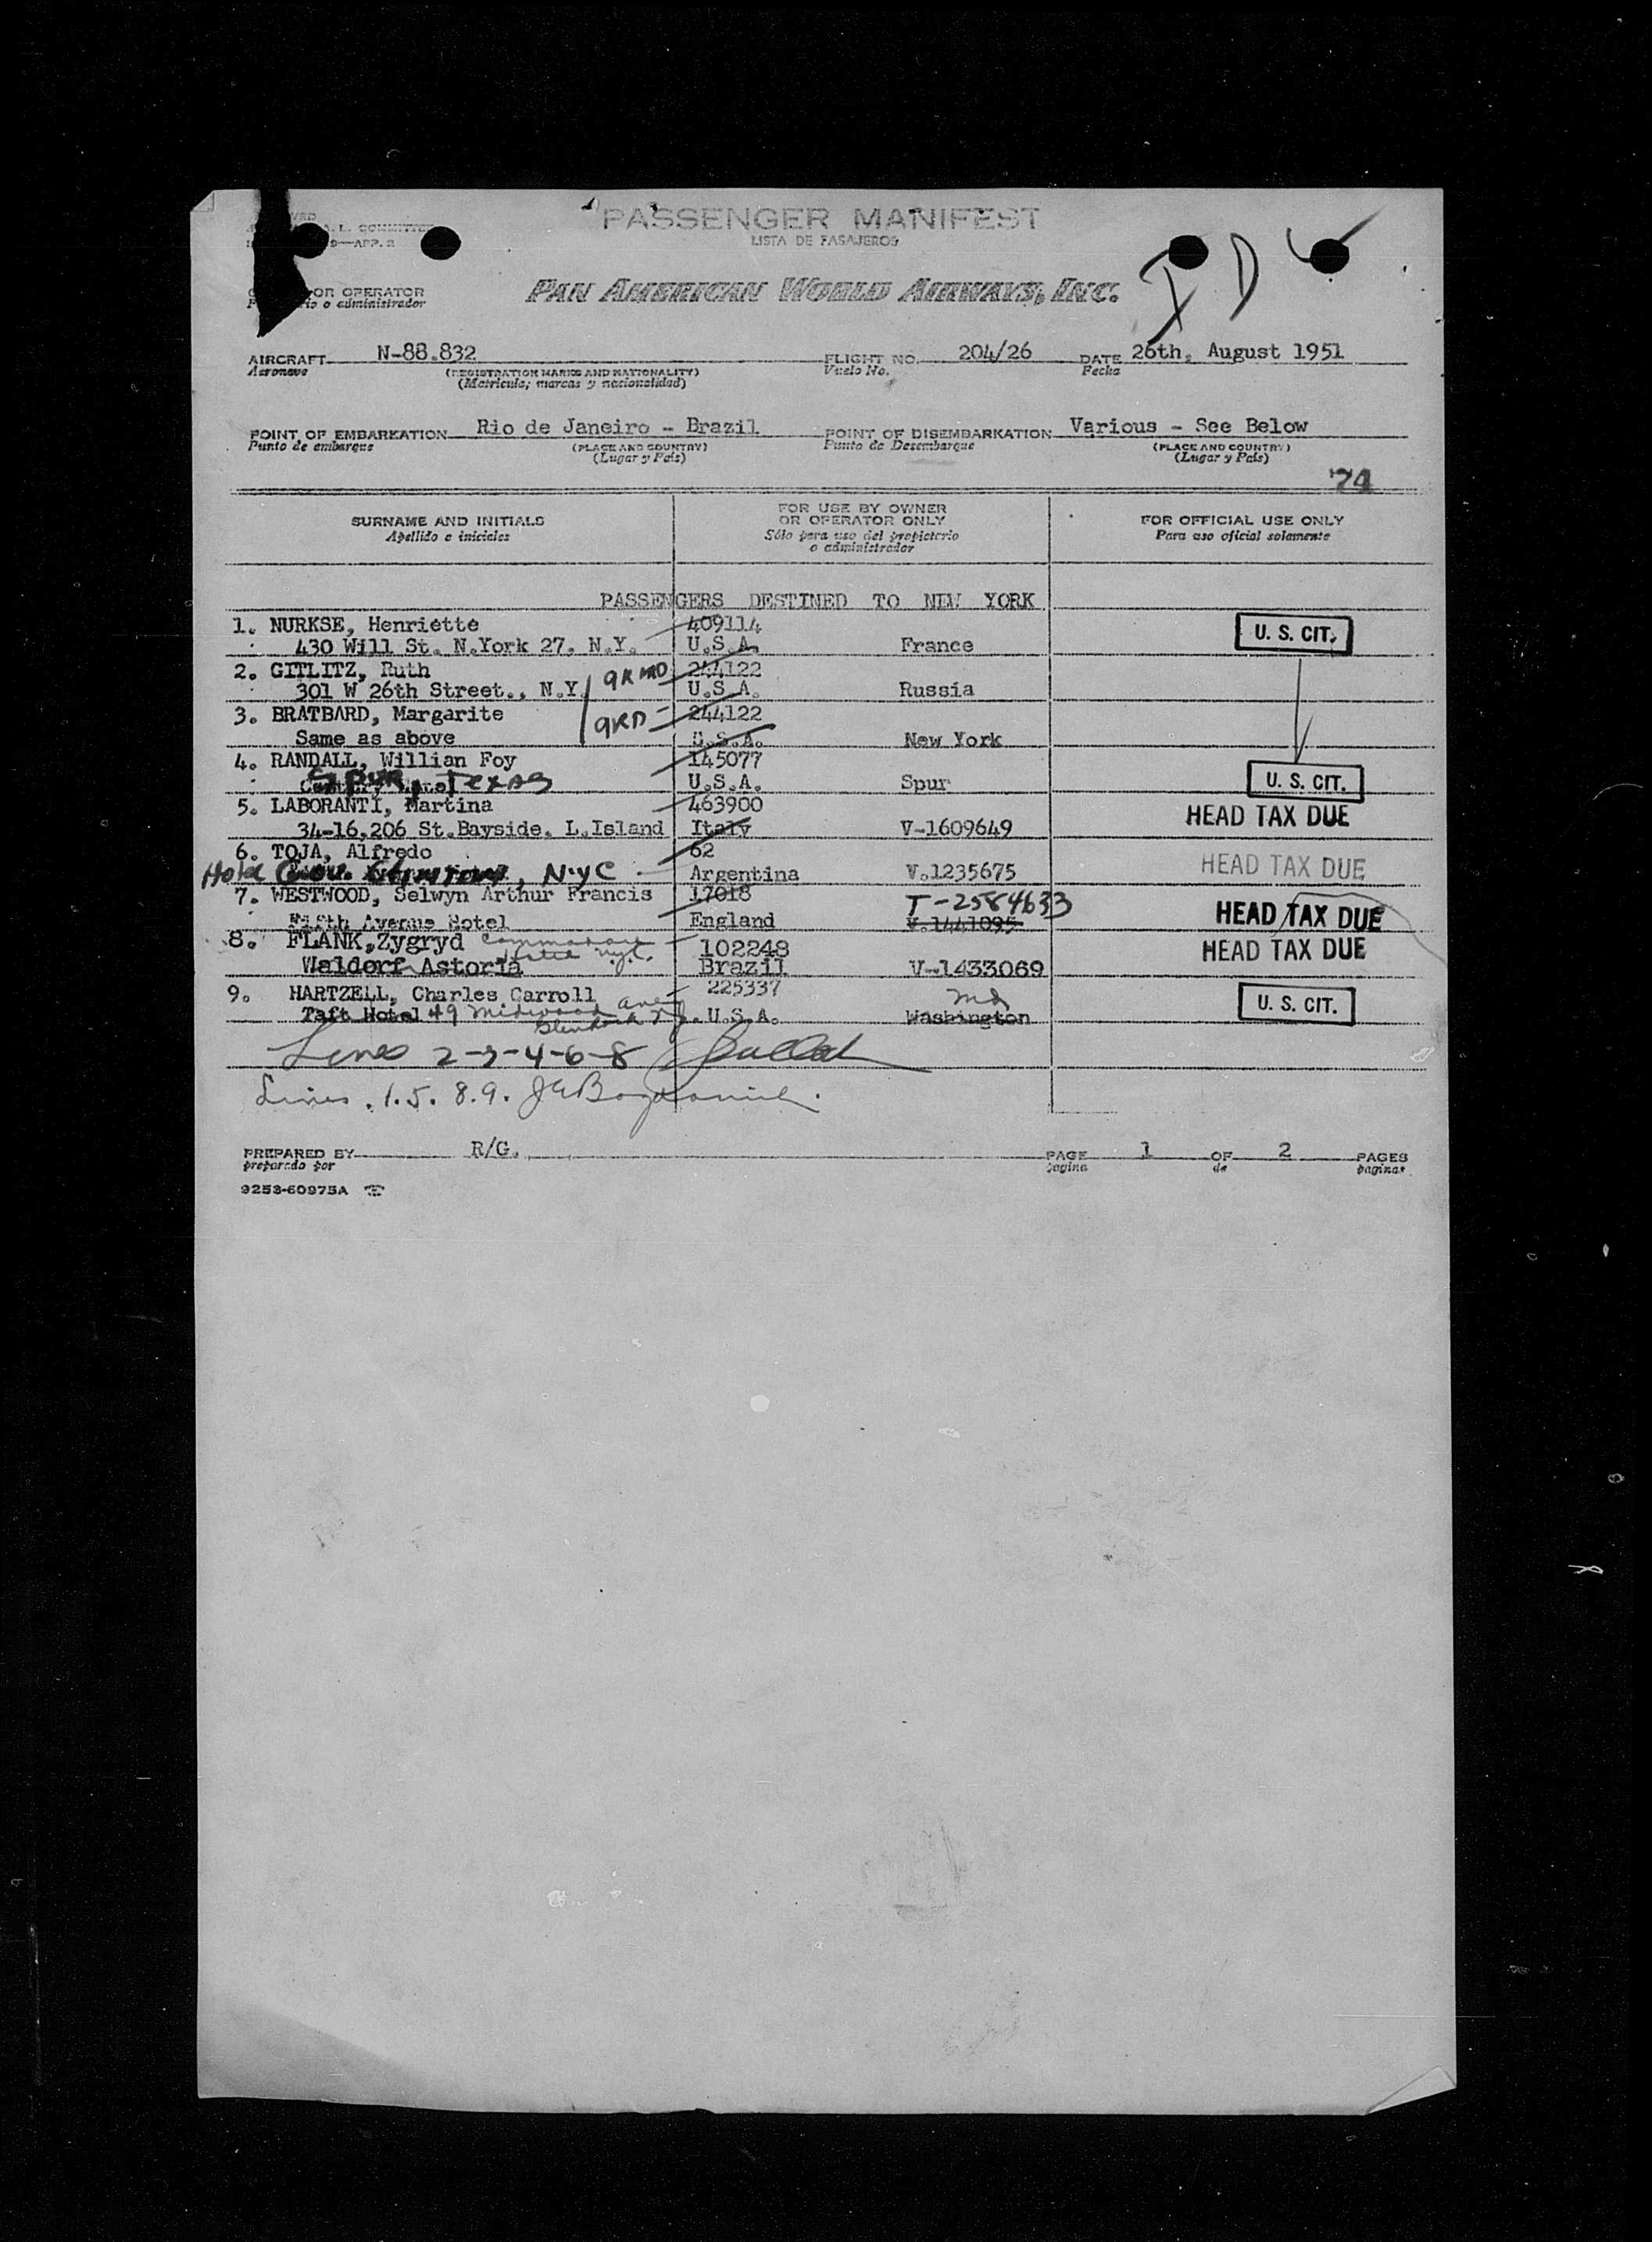 PASSENGER MANIFEST
LISTA DE PASAJEROS
9—APP. 2
OR OPERATOR
o administrador
PAN AMERICAN WORLD AIRWAYS, INC.
I D
AIRCRAFT N-88.832 FLIGHT NO. 204/26 DATE 26th, August 1951
Aeronave (REGISTRATION MARKS AND NATIONALITY) Vuelo No. Fecha
(Matricula; marcas y nacionalidad)
POINT OF EMBARKATION Rio de Janeiro - Brazil POINT OF DISEMBARKATION Various - See Below
Punto de embarque (PLACE AND COUNTRY) Punto de Desembarque (PLACE AND COUNTRY)
(Lugar y País) (Lugar y País)
74
SURNAME AND INITIALS FOR USE BY OWNER OR OPERATOR ONLY FOR OFFICIAL USE ONLY
Apellido e iniciales Sólo para uso del propietario o administrador Para uso oficial solamente
PASSENGERS DESTINED TO NEW YORK
1. NURKSE, Henriette 409114 U. S. CIT.
430 Will St. N.York 27. N.Y. U.S.A. France
2. GITLITZ, Ruth 244122
301 W 26th Street., N.Y. U.S.A. Russia
3. BRATBARD, Margarite 244122
Same as above U.S.A. New York
4. RANDALL, Willian Foy 145077
Spur, Texas U.S.A. Spur U. S. CIT.
5. LABORANTI, Martina 463900 HEAD TAX DUE
34-16,206 St.Bayside. L.Island Italy V-1609649
6. TOJA, Alfredo 62 HEAD TAX DUE
Hotel Gov. Clinton, NYC Argentina V.1235675
7. WESTWOOD, Selwyn Arthur Francis 17018 T-2584633 HEAD TAX DUE
Fifth Avenue Hotel England V.1441095
8. FLANK,Zygryd Commodore Hotel nyc. 102248 HEAD TAX DUE
Waldorf Astoria Brazil V-1433069
9. HARTZELL, Charles Carroll 225337 U. S. CIT.
Taft Hotel 49 Midwood ave U.S.A. Washington
Lines 2-3-4-6-8
Lines . 1. 5. 8. 9.
PREPARED BY R/G. PAGE 1 OF 2 PAGES
preparado por pagina de paginas
9253-60975A